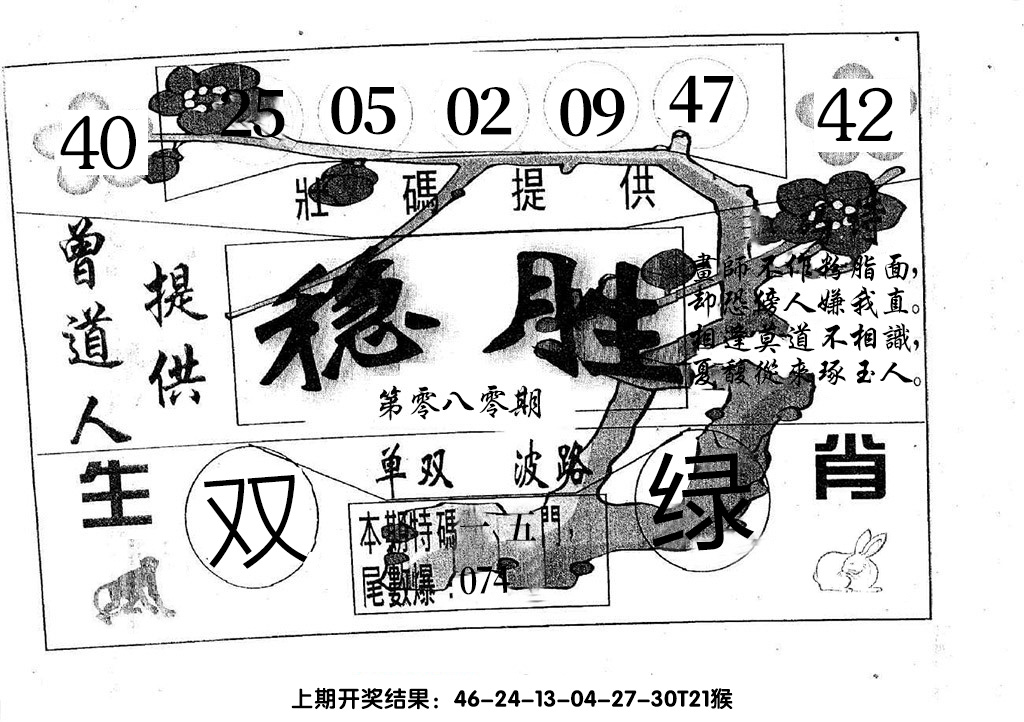 40 25 05 02 09 47 42
壯碼提供
特
曾道人
提供
稳胜
第零八零期
畫師不作粉脂面，
却恐傍人嫌我直。
相逢莫道不相識，
夏馥從來琢玉人。
生肖
单双 波路
双
绿
本期特碼一、五門，
尾數爆：074
上期开奖结果：46-24-13-04-27-30T21猴